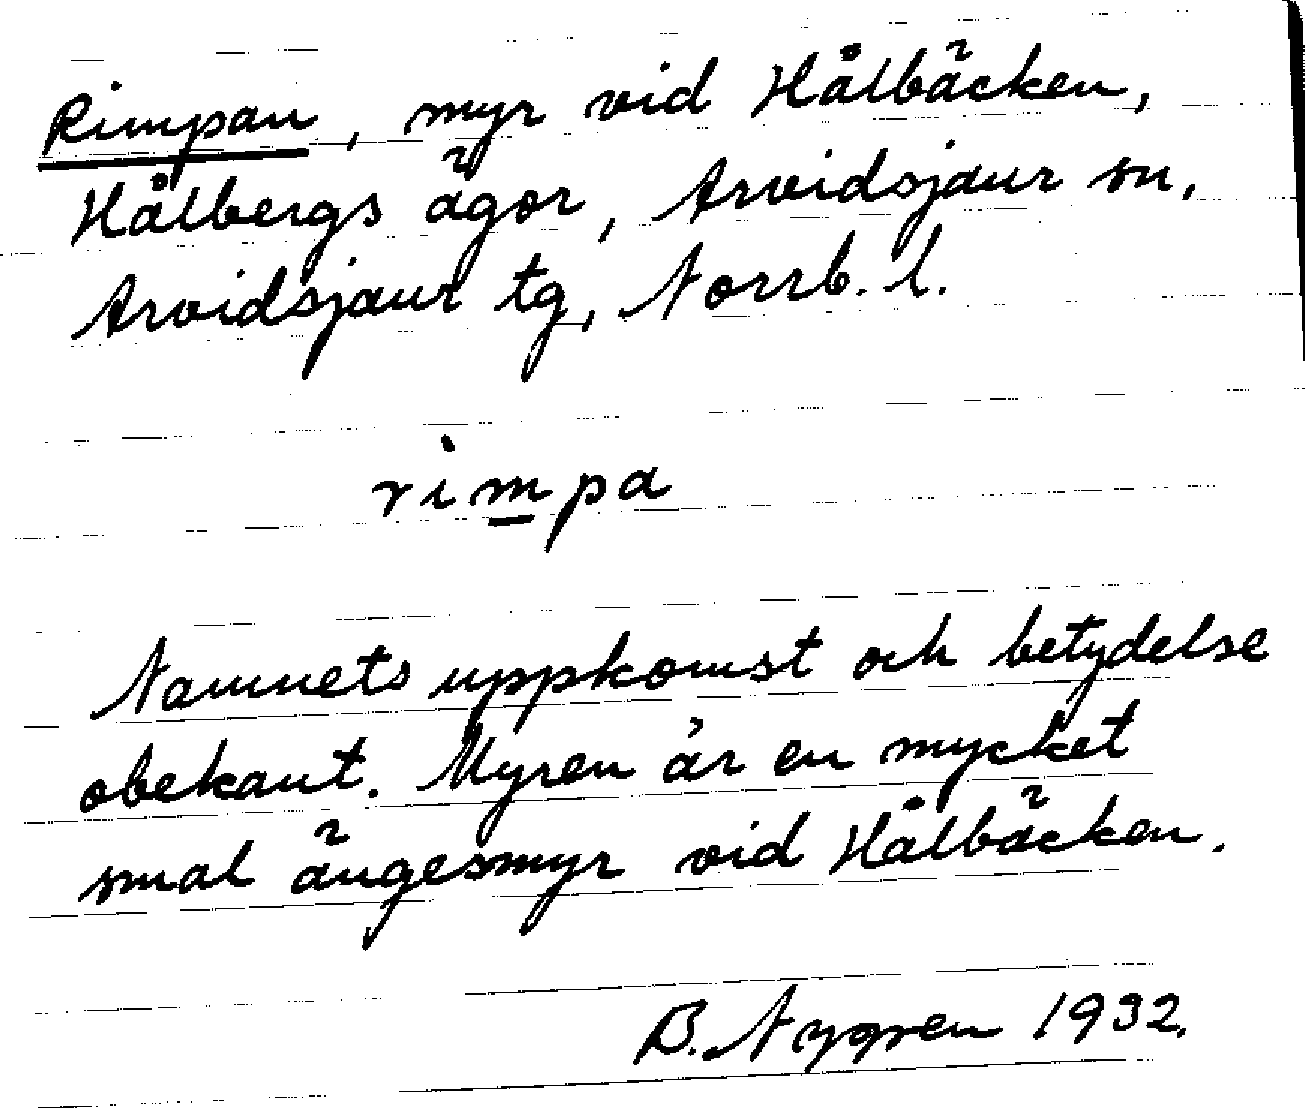 Rimpan, myr vid Hålbäcken,
Hålbergs ägor, Arvidsjaur sn,
Arvidsjaur tg, Norrb. l.
rimpa
Namnets uppkomst och betydelse
obekant. Myren är en mycket
smal ängesmyr vid Hålbäcken.
B. Nygren 1932.